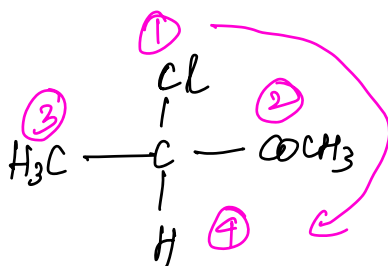 ①
Cl
③ ②
H₃C — C — COCH₃
H ④